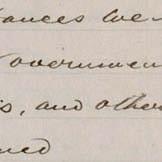 ances we
overnmen
is, and othe
ned